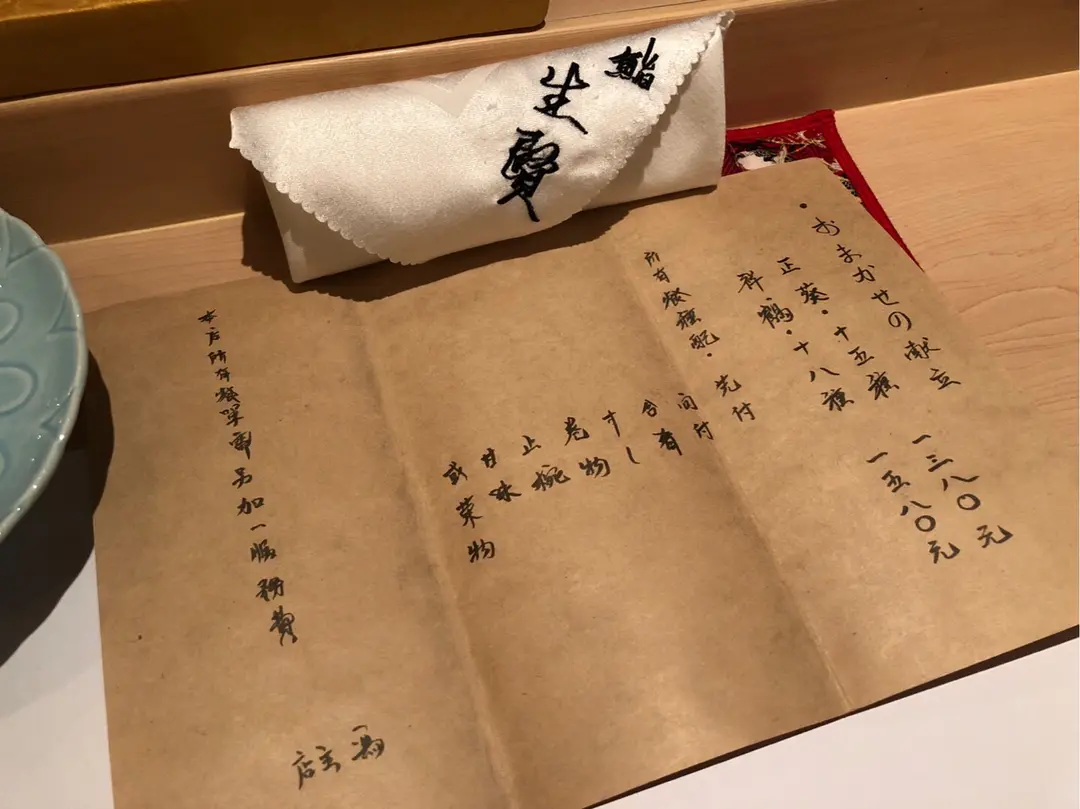 鮨
生
賢
おまかせの献立
正葵・十五種 一三八〇元
祥鶴・十八種 一五八〇元
所有餐種配・先付
间付
含有
寸し
卷物
止椀
甘味
或菓物
本店所有餐單需另加一服務費
店主 馮